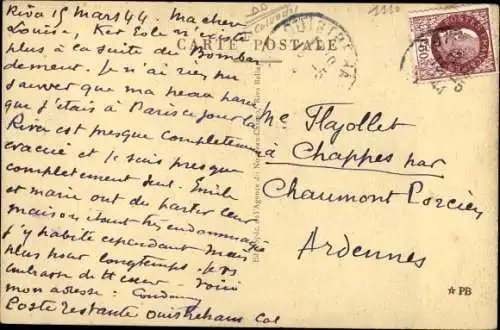 Riva 15 Mars 44. Ma chère
Louise, Ker Eole n'existe
plus à la suite du Bombar
dement. Je n'ai rien pu
sauver que ma peau parce
que j'étais à Paris ce jour là
Riva est presque complètement
évacué et je suis presque
complètement seul. Emile
et Marie ont dû partir leur
maison étant très endommagée
j'y habite cependant mais
plus pour longtemps. Je vs
embrasse de tt cœur. Voici
mon adresse :
Poste restante Ouistreham Cal
CARTE POSTALE
OUISTREHAM
Me Flajollet
à Chappes par
Chaumont Porcien
Ardennes
★ PB